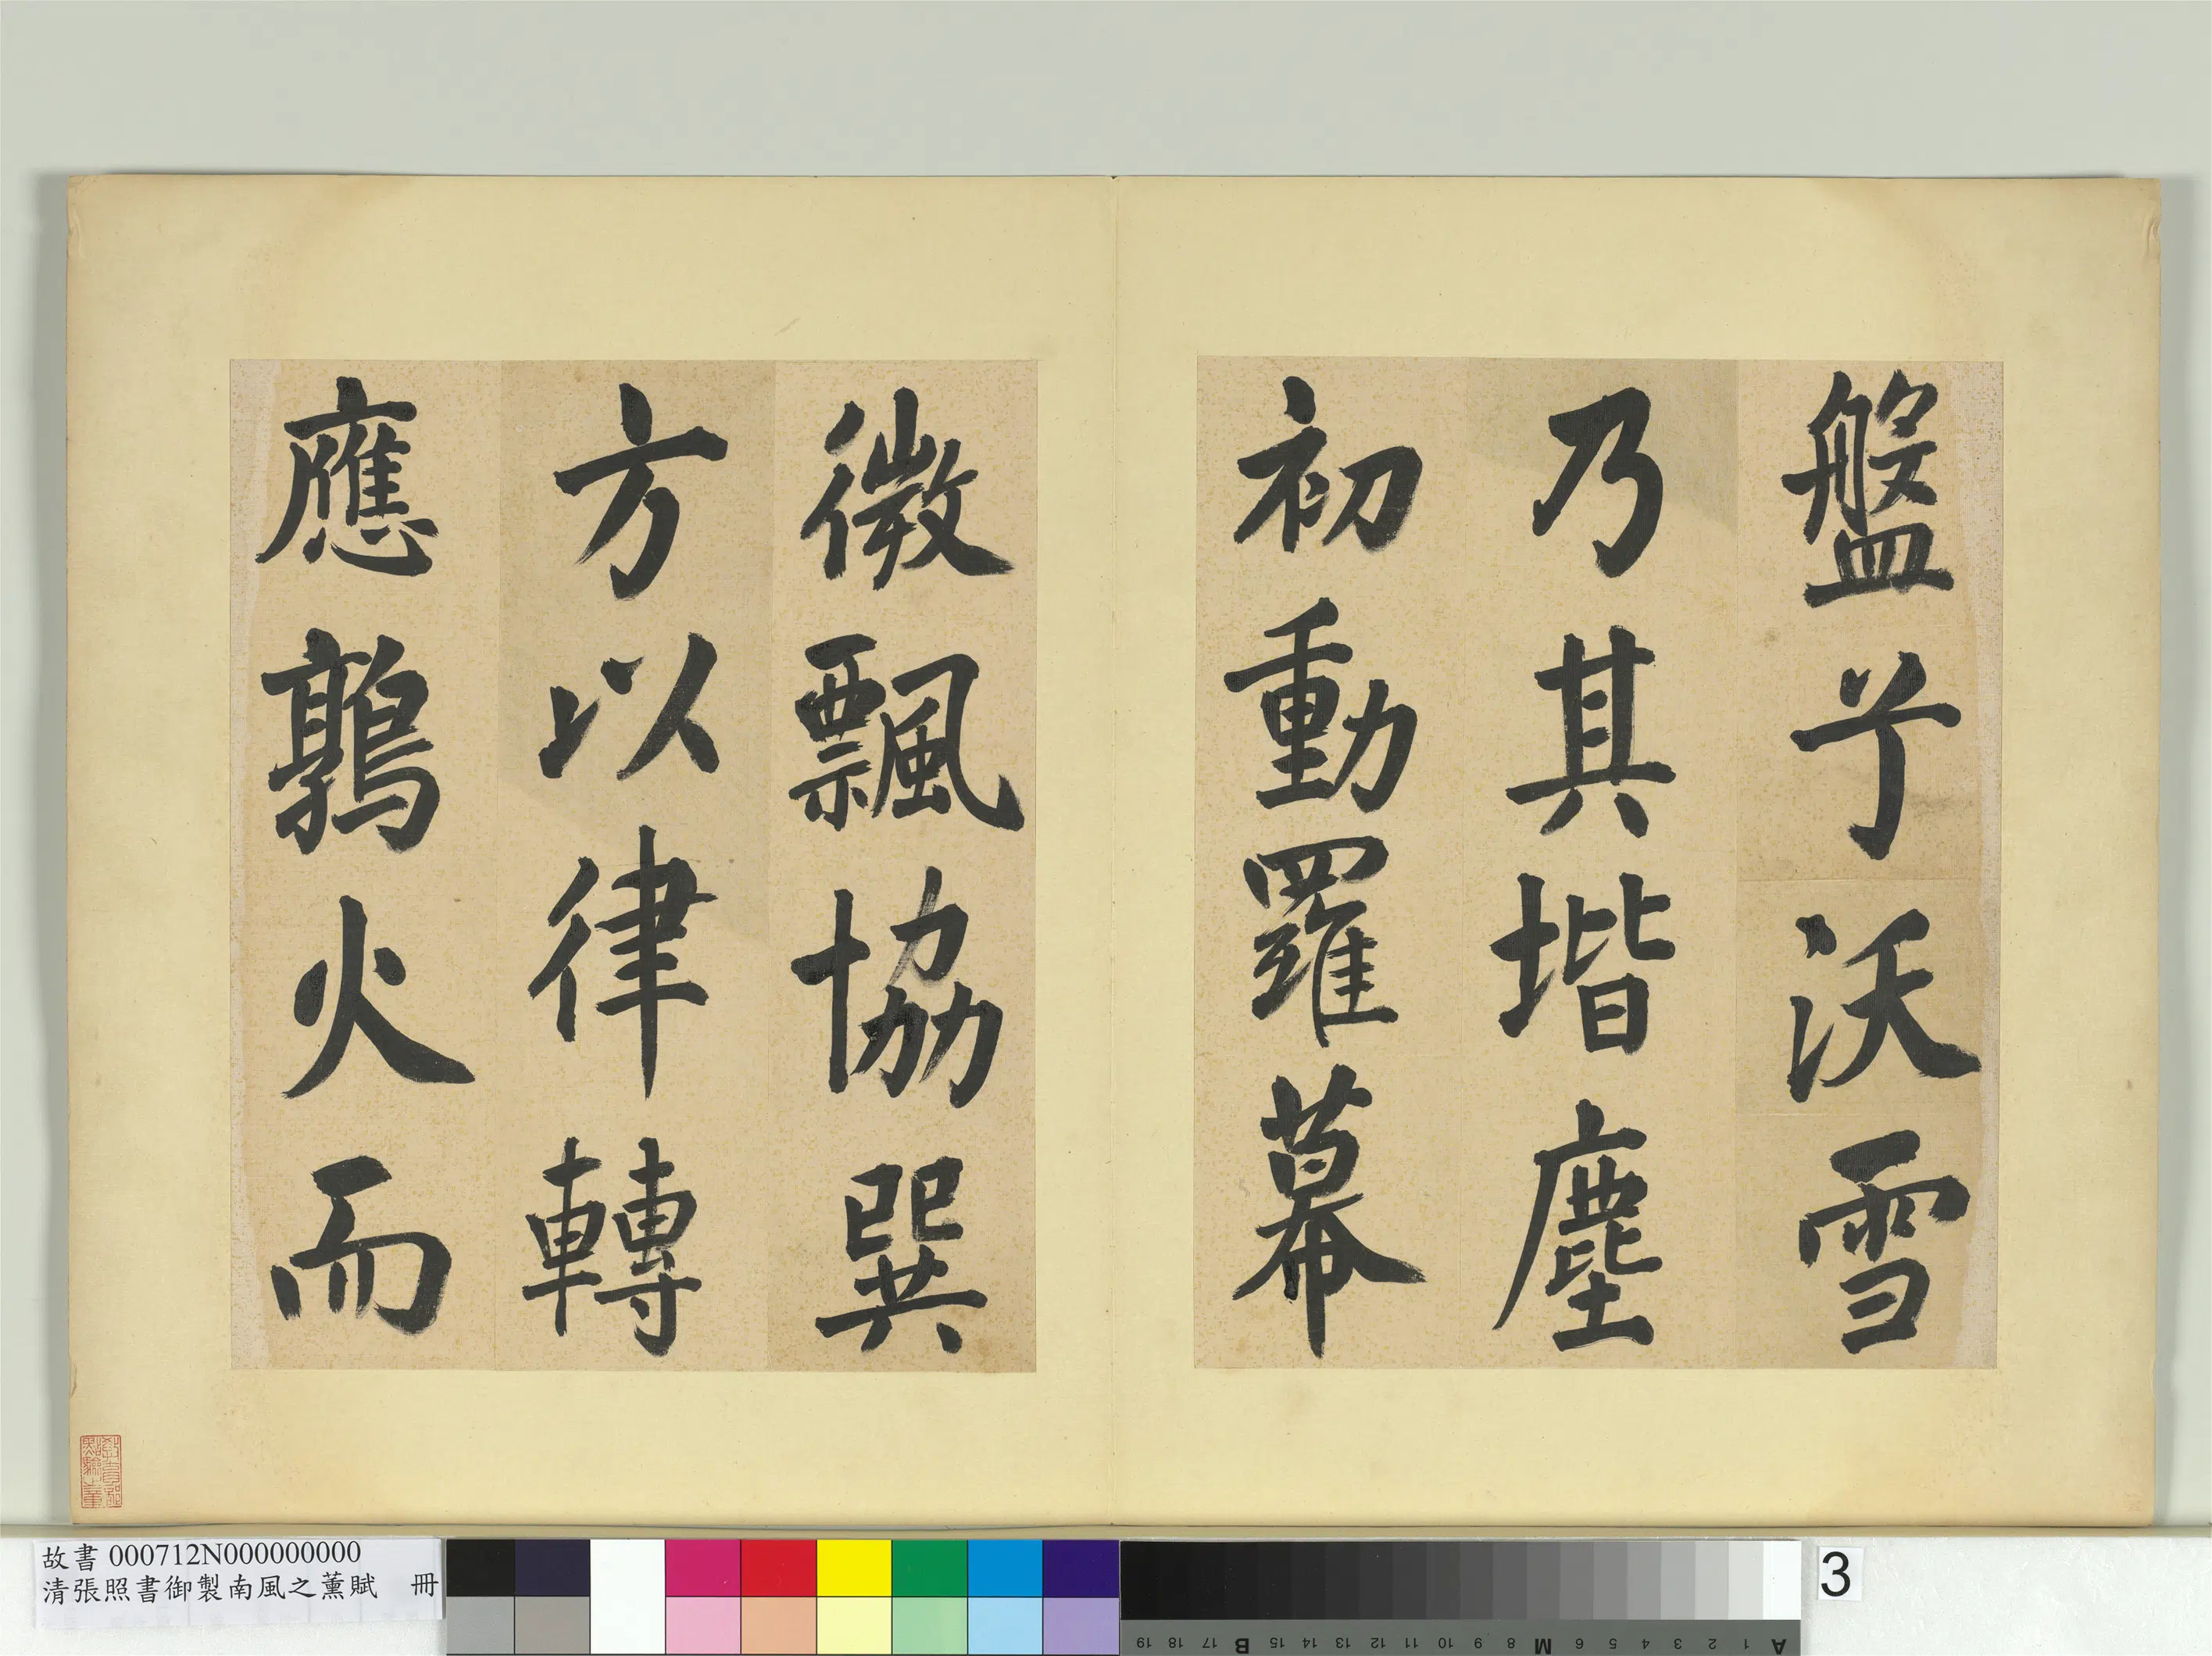 盤兮沃雪
乃其堦塵
初動羅幕
微飄協巽
方以律轉
應鶉火而
故書 000712N000000000
清張照書御製南風之薰賦 冊
3
A 1 2 3 4 5 6 M 8 9 10 11 12 13 14 15 B 17 18 19